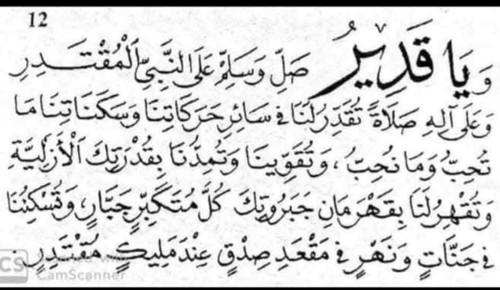 12
وَيَا قَدِيرُ صَلِّ وَسَلِّمْ عَلَى النَّبِيِّ الْمُقْتَدِرِ
وَعَلَى آلِهِ صَلَاةً تُقَدِّرُ لَنَا فِي سَائِرِ حَرَكَاتِنَا وَسَكَنَاتِنَا مَا
تُحِبُّ وَمَا نُحِبُّ ، وَتُقَوِّينَا وَتُمِدُّنَا بِقُدْرَتِكَ الْأَزَلِيَّةِ
وَتَقْهَرُ لَنَا بِقَهْرَمَانِ جَبَرُوتِكَ كُلَّ مُتَكَبِّرٍ جَبَّارٍ ، وَتُسْكِنُنَا
فِي جَنَّاتٍ وَنَهَرٍ فِي مَقْعَدِ صِدْقٍ عِنْدَ مَلِيكٍ مُقْتَدِرٍ
CS Scanned with
CamScanner